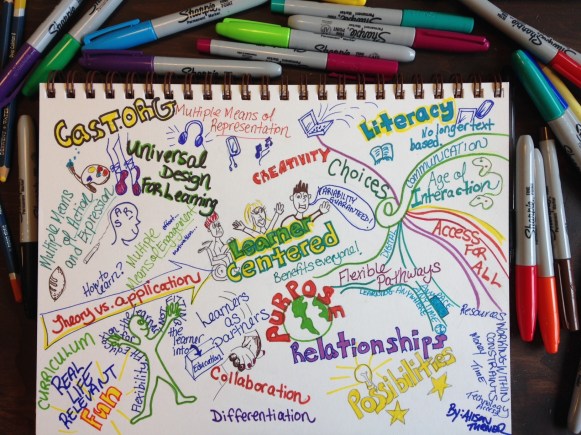 CastORG
Multiple Means of
Representation
Literacy
No longer text
based.
CREATIVITY
Choices
COMMUNICATION
Age of
Interaction
Universal
Design
For Learning
Multiple Means
of Action
and Expression
Multiple
Means of Engagement
VARIABILITY
GUARANTEED!
ACCESS FOR
ALL
Learner
Centered
Benefits Everyone!
How to
Learn?
Theory vs. application
Flexible Pathways
PURPOSE
Learners
as
Partners
Education
Relationships
Resources
WORKING WITHIN
CONSTRAINTS
MONEY TIME
Technology
Access
CURRICULUM
REAL
LIFE
RELEVANT
Fun
Flexibility
the learner into
Collaboration
Differentiation
Possibilities
By: Alison
Sharpie
Sharpie
Sharpie
Sharpie
Sharpie